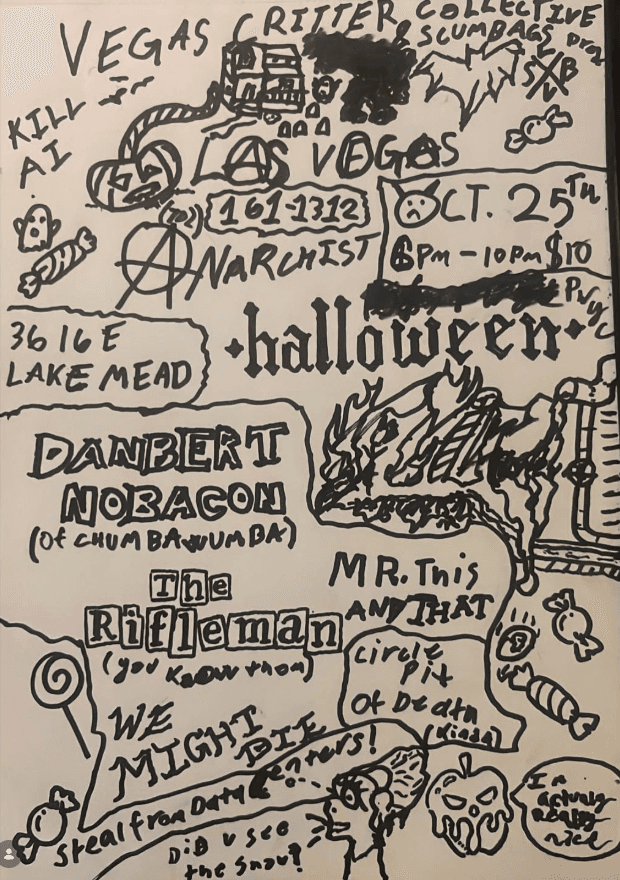 VEGAS CRITTER COLLECTIVE
& SCUMBAGS
SXB
KILL
AI
LAS VEGAS
(702) 161-1312
OCT. 25TH
6PM - 10PM $10
ANARCHIST
PWYC
halloween
3616 E
LAKE MEAD
DANBERT
NOBACON
(Of CHUMBAWUMBA)
The
Rifleman
(you know them)
MR. This
AND THAT
circle
Pit
Of Death
(kinda)
WE
MIGHT
DIE
Steal from Data Centers!
DID U See
the Show?
I'm
actually
really
nice